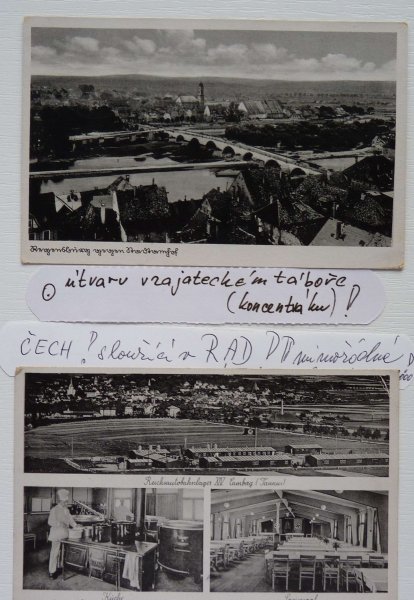 Regensburg gegen Stadtamhof
O útvaru v zajateckém táboře
(koncentráku)!
ČECH! sloužící v RAD!!! mimořádné!
Reichsautobahnlager XV Camberg (Taunus)
Küche